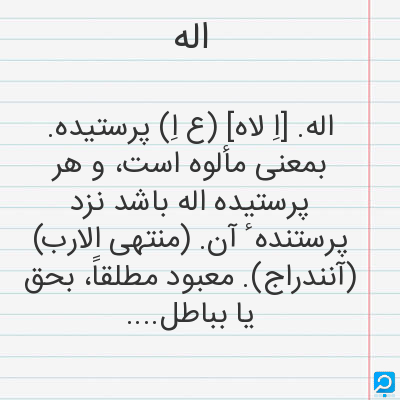 اله
اله. [اِ لاه] (ع اِ) پرستیده.
بمعنی مألوه است، و هر
پرستیده اله باشد نزد
پرستنده ٔ آن. (منتهی الارب)
(آنندراج). معبود مطلقاً، بحق
یا بباطل....